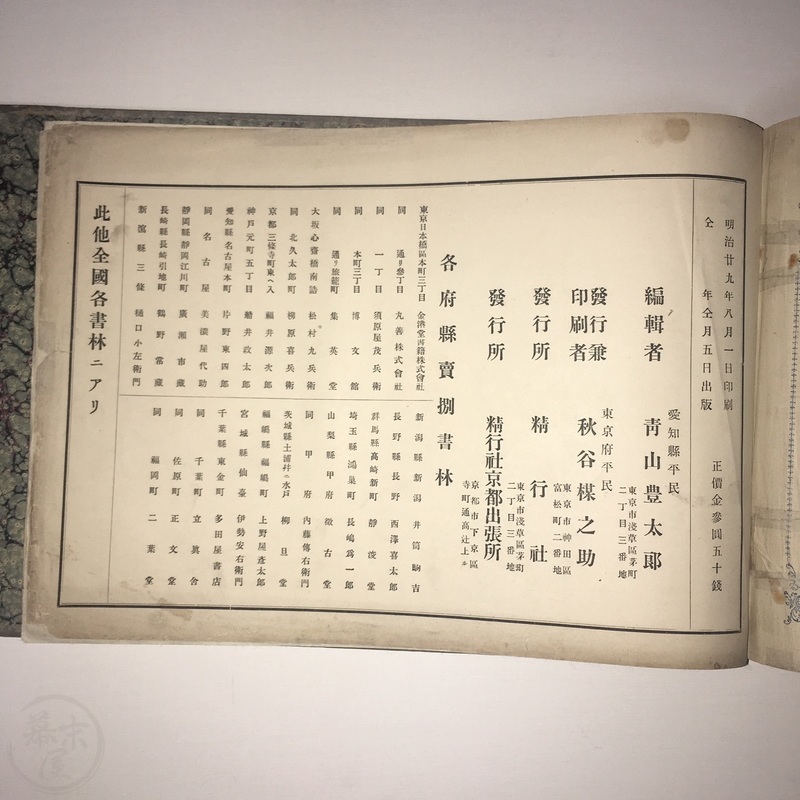 明治廿九年八月一日印刷
仝 年仝月五日出版
正價金參圓五十錢
愛知縣平民
編輯者 靑山豊太郎
東京市淺草區茅町
二丁目三番地
東京府平民
發行兼
印刷者 秋谷楳之助
東京市神田區
富松町二番地
發行所 精行社
東京市淺草區茅町
二丁目三番地
發行所 精行社京都出張所
京都市下京區
寺町通高辻上ル
各府縣賣捌書林
東京日本橋區本町三丁目 金港堂書籍株式會社
同 通リ參丁目 丸善株式會社
同 一丁目 須原屋茂兵衛
同 本町三丁目 博文館
同 通リ旅籠町 集英堂
大坂心齋橋南詰 松村九兵衛
同 北久太郎町 柳原喜兵衛
京都三條寺町東ヘ入 福井源次郎
神戸元町五丁目 船井政太郎
愛知縣名古屋本町 片野東四郎
同 名古屋 美濃屋代助
靜岡縣靜岡江川町 廣瀨市藏
長崎縣長崎引地町 鶴野常藏
新潟縣三條 樋口小左衛門
新潟縣新潟 井筒駒吉
長野縣長野 西澤喜太郎
群馬縣高崎新町 靜淩堂
埼玉縣鴻巣町 長嶋爲一郎
山梨縣甲府 徴古堂
同 甲府 內藤傳右衛門
茨城縣土浦幷ニ水戸 柳旦堂
福嶋縣福嶋町 上野屋彥太郎
宮城縣仙臺 伊勢安右衛門
千葉縣東金町 多田屋書店
同 千葉町 立眞舍
同 佐原町 正文堂
同 福岡町 二葉堂
此他全國各書林ニアリ
幕末屋